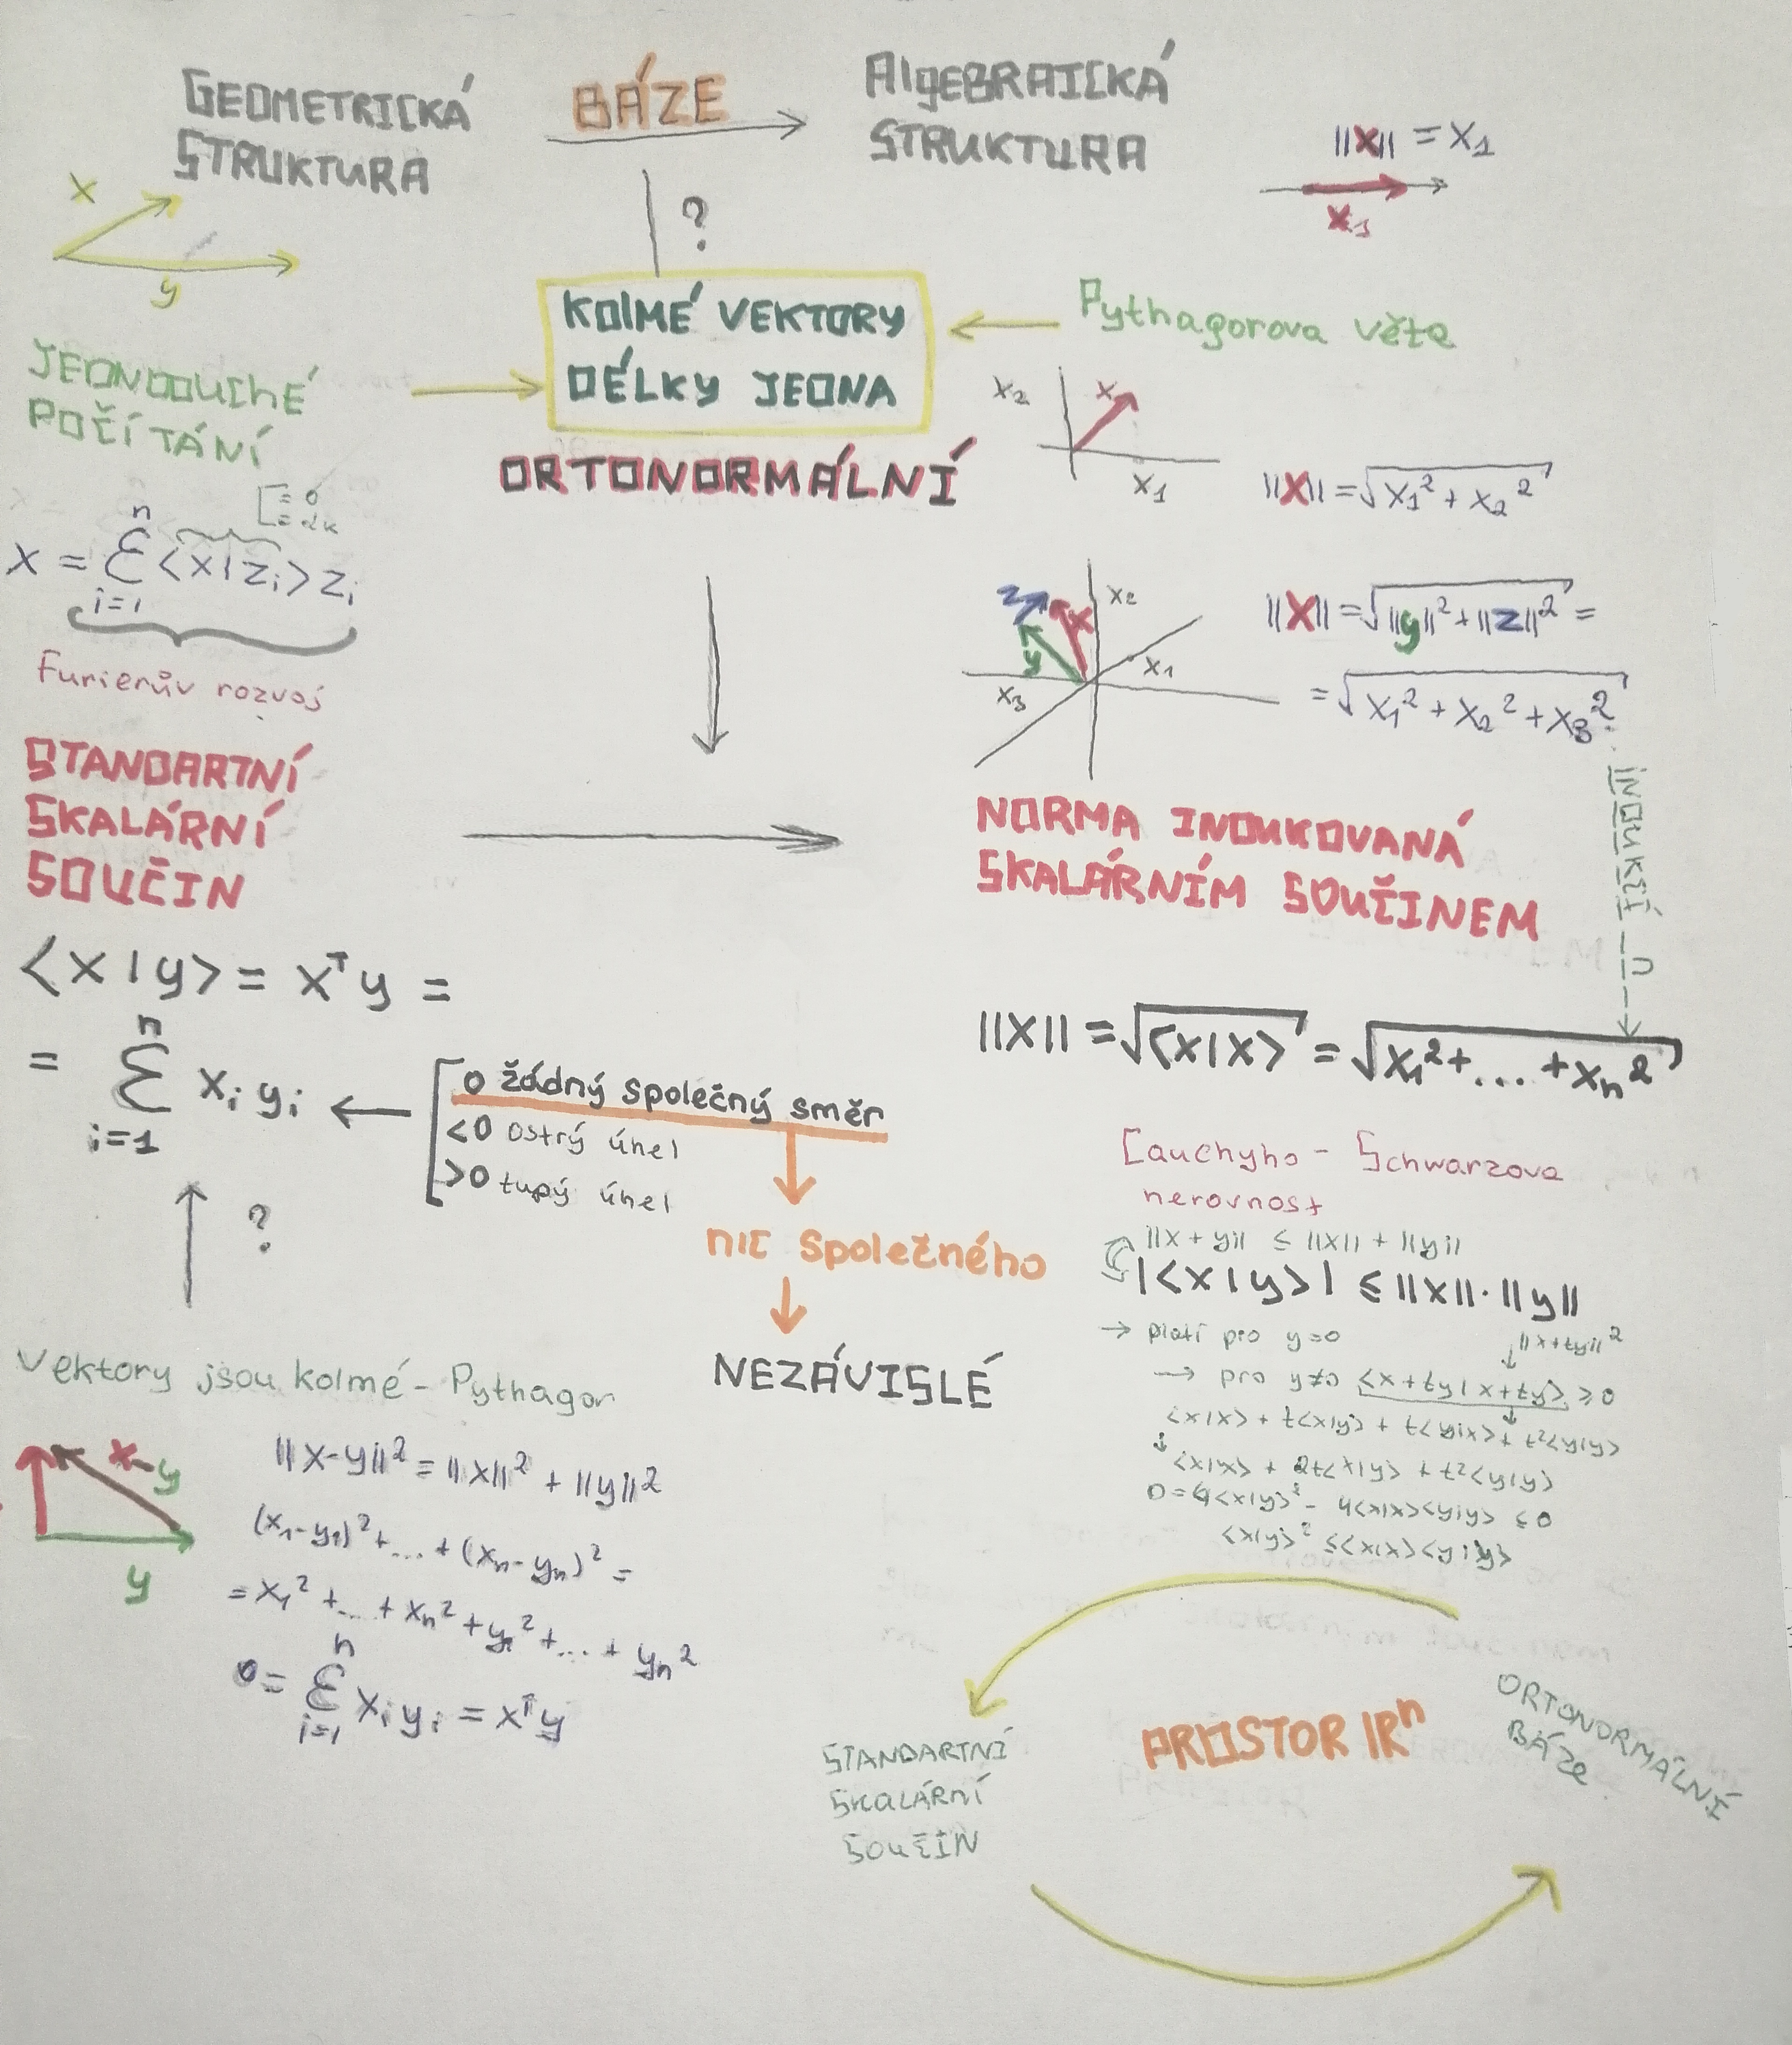 GEOMETRICKÁ
STRUKTURA
BÁZE
AlgEBRAICKÁ
STRUKTURA
||x|| = x₁
x₁
x
y
?
KOlMÉ VEKTORY
DÉLKY JEDNA
ORTONORMÁLNÍ
Pythagorova věta
JEDNODUChÉ
POČÍTÁNÍ
x₂
x
x₁
||x|| = √(x₁² + x₂²)
x = Σ <x|zᵢ> zᵢ
n
i=1
Furierův rozvoj
z
x
y
x₂
x₁
x₃
||x|| = √(||y||² + ||z||²) =
= √(x₁² + x₂² + x₃²)
INDUKCÍ
STANDARTNÍ
SKALÁRNÍ
SOUČIN
NORMA INDUKOVANÁ
SKALÁRNÍM SOUČINEM
<x|y> = xᵀy =
n
= Σ xᵢ yᵢ
i=1
0 žádný společný směr
<0 ostrý úhel
>0 tupý úhel
nic společného
NEZÁVISLÉ
||x|| = √<x|x> = √(x₁² + ... + xₙ²)
Cauchyho - Schwarzova
nerovnost
||x + y|| ≤ ||x|| + ||y||
|<x|y>| ≤ ||x|| · ||y||
→ platí pro y=0
||x+ty||²
→ pro y≠0 <x+ty|x+ty> ≥ 0
<x|x> + t<x|y> + t<y|x> + t²<y|y>
<x|x> + 2t<x|y> + t²<y|y>
0= 4<x|y>² - 4<x|x><y|y> ≤ 0
<x|y>² ≤ <x|x><y|y>
?
Vektory jsou kolmé - Pythagor
x-y
y
||x-y||² = ||x||² + ||y||²
(x₁-y₁)² + ... + (xₙ-yₙ)² =
= x₁² + ... + xₙ² + y₁² + ... + yₙ²
n
0 = Σ xᵢ yᵢ = xᵀy
i=1
STANDARTNÍ
SKALÁRNÍ
SOUČIN
PROSTOR ℝⁿ
ORTONORMÁLNÍ
BÁZE